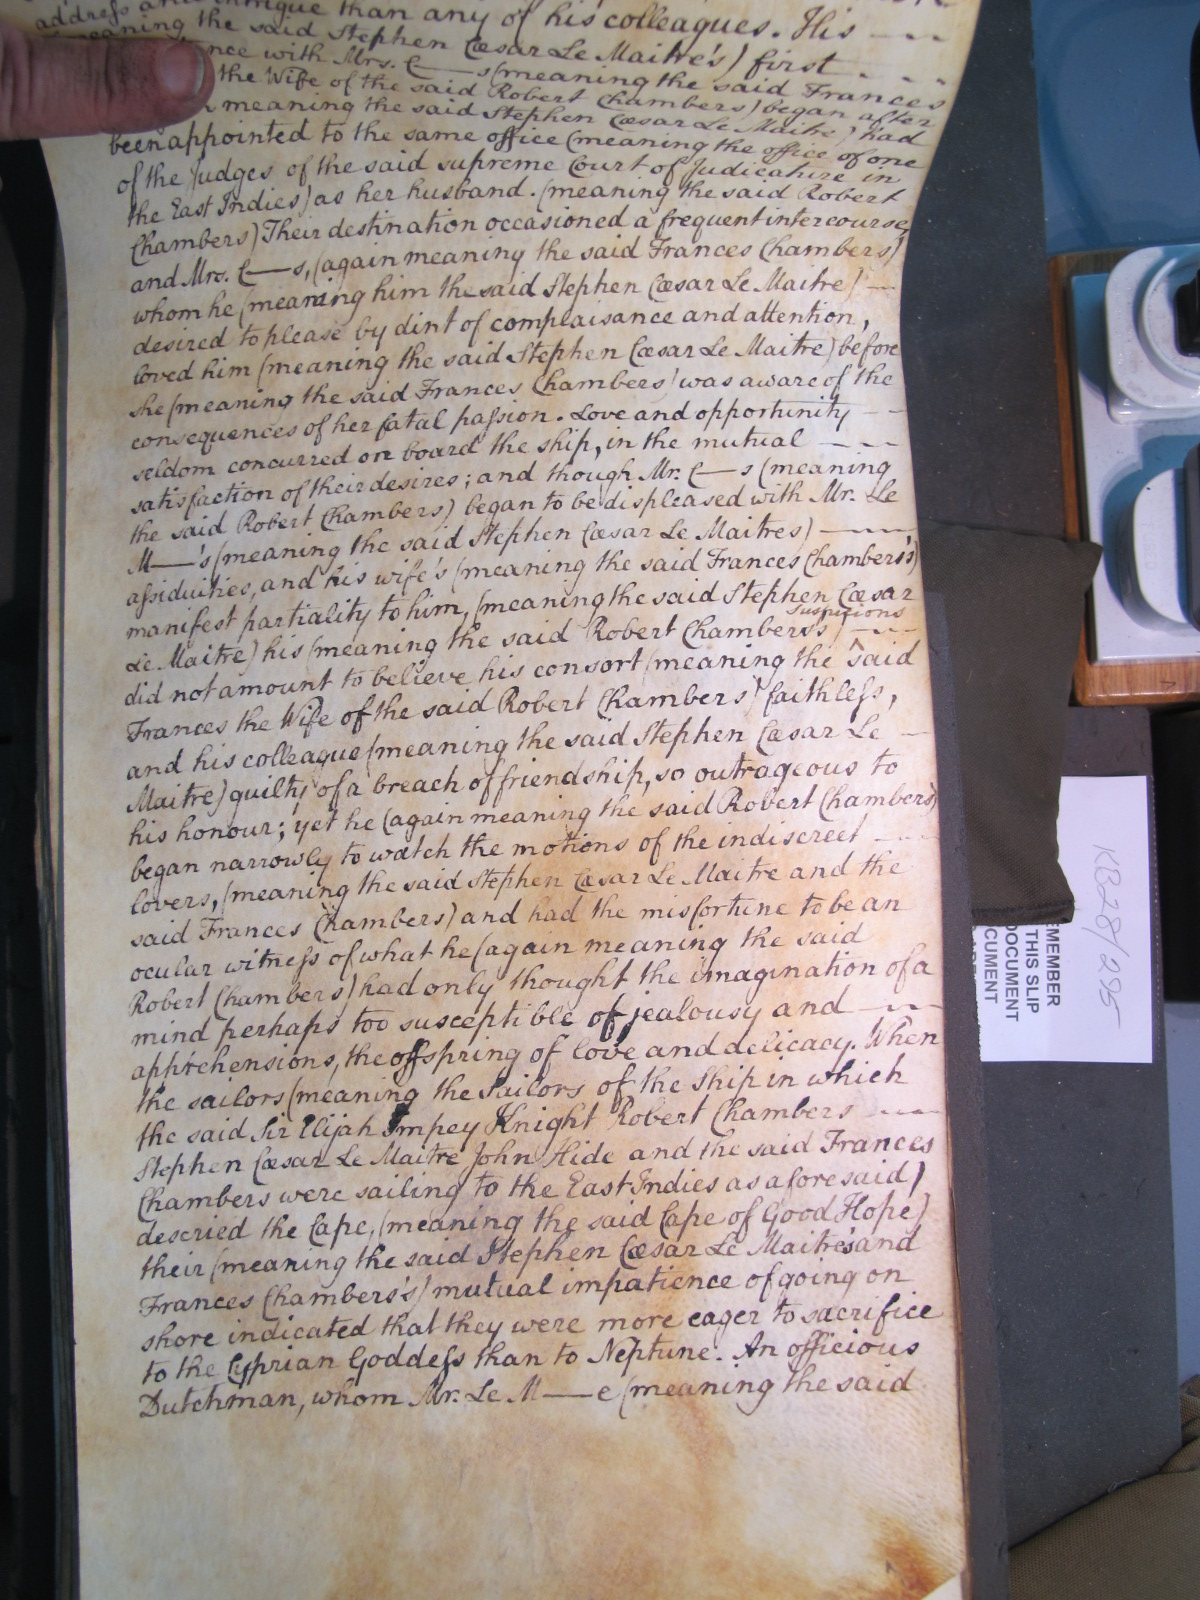 address and intrigue than any of his colleagues. His
meaning the said Stephen Cæsar Le Maitre's) first
nce with Mrs. C——s (meaning the said Frances
the Wife of the said Robert Chambers) began after
meaning the said Stephen Cæsar Le Maitre) had
been appointed to the same office (meaning the office of one
of the Judges of the said supreme Court of Judicature in
the East Indies) as her husband. (meaning the said Robert
Chambers) Their destination occasioned a frequent intercourse,
and Mrs. C——s, (again meaning the said Frances Chambers)
whom he (meaning him the said Stephen Cæsar Le Maitre)
desired to please by dint of complaisance and attention,
loved him (meaning the said Stephen Cæsar Le Maitre) before
she (meaning the said Frances Chambers) was aware of the
consequences of her fatal passion. Love and opportunity
seldom concurred on board the ship, in the mutual
satisfaction of their desires; and though Mr. C——s (meaning
the said Robert Chambers) began to be displeased with Mr. Le
M——'s (meaning the said Stephen Cæsar Le Maitres)
assiduities, and his wife's (meaning the said Frances Chambers's)
manifest partiality to him, (meaning the said Stephen Cæsar
Le Maitre) his (meaning the said Robert Chambers's) suspicions
did not amount to believe his consort (meaning the said
Frances the Wife of the said Robert Chambers) faithless,
and his colleague (meaning the said Stephen Cæsar Le
Maitre) guilty of a breach of friendship, so outrageous to
his honour; yet he (again meaning the said Robert Chambers)
began narrowly to watch the motions of the indiscreet
lovers, (meaning the said Stephen Cæsar Le Maitre and the
said Frances Chambers) and had the misfortune to be an
ocular witness of what he (again meaning the said
Robert Chambers) had only thought the imagination of a
mind perhaps too susceptible of jealousy and
apprehensions, the offspring of love and delicacy. When
the sailors (meaning the Sailors of the Ship in which
the said Sir Elijah Impey Knight Robert Chambers
Stephen Cæsar Le Maitre John Hide and the said Frances
Chambers were sailing to the East Indies as aforesaid)
descried the Cape, (meaning the said Cape of Good Hope)
their (meaning the said Stephen Cæsar Le Maitres and
Frances Chambers's) mutual impatience of going on
shore indicated that they were more eager to sacrifice
to the Cyprian Goddess than to Neptune. An officious
Dutchman, whom Mr. Le M——e (meaning the said
KB28/295
EMEMBER
THIS SLIP
DOCUMENT
CUMENT